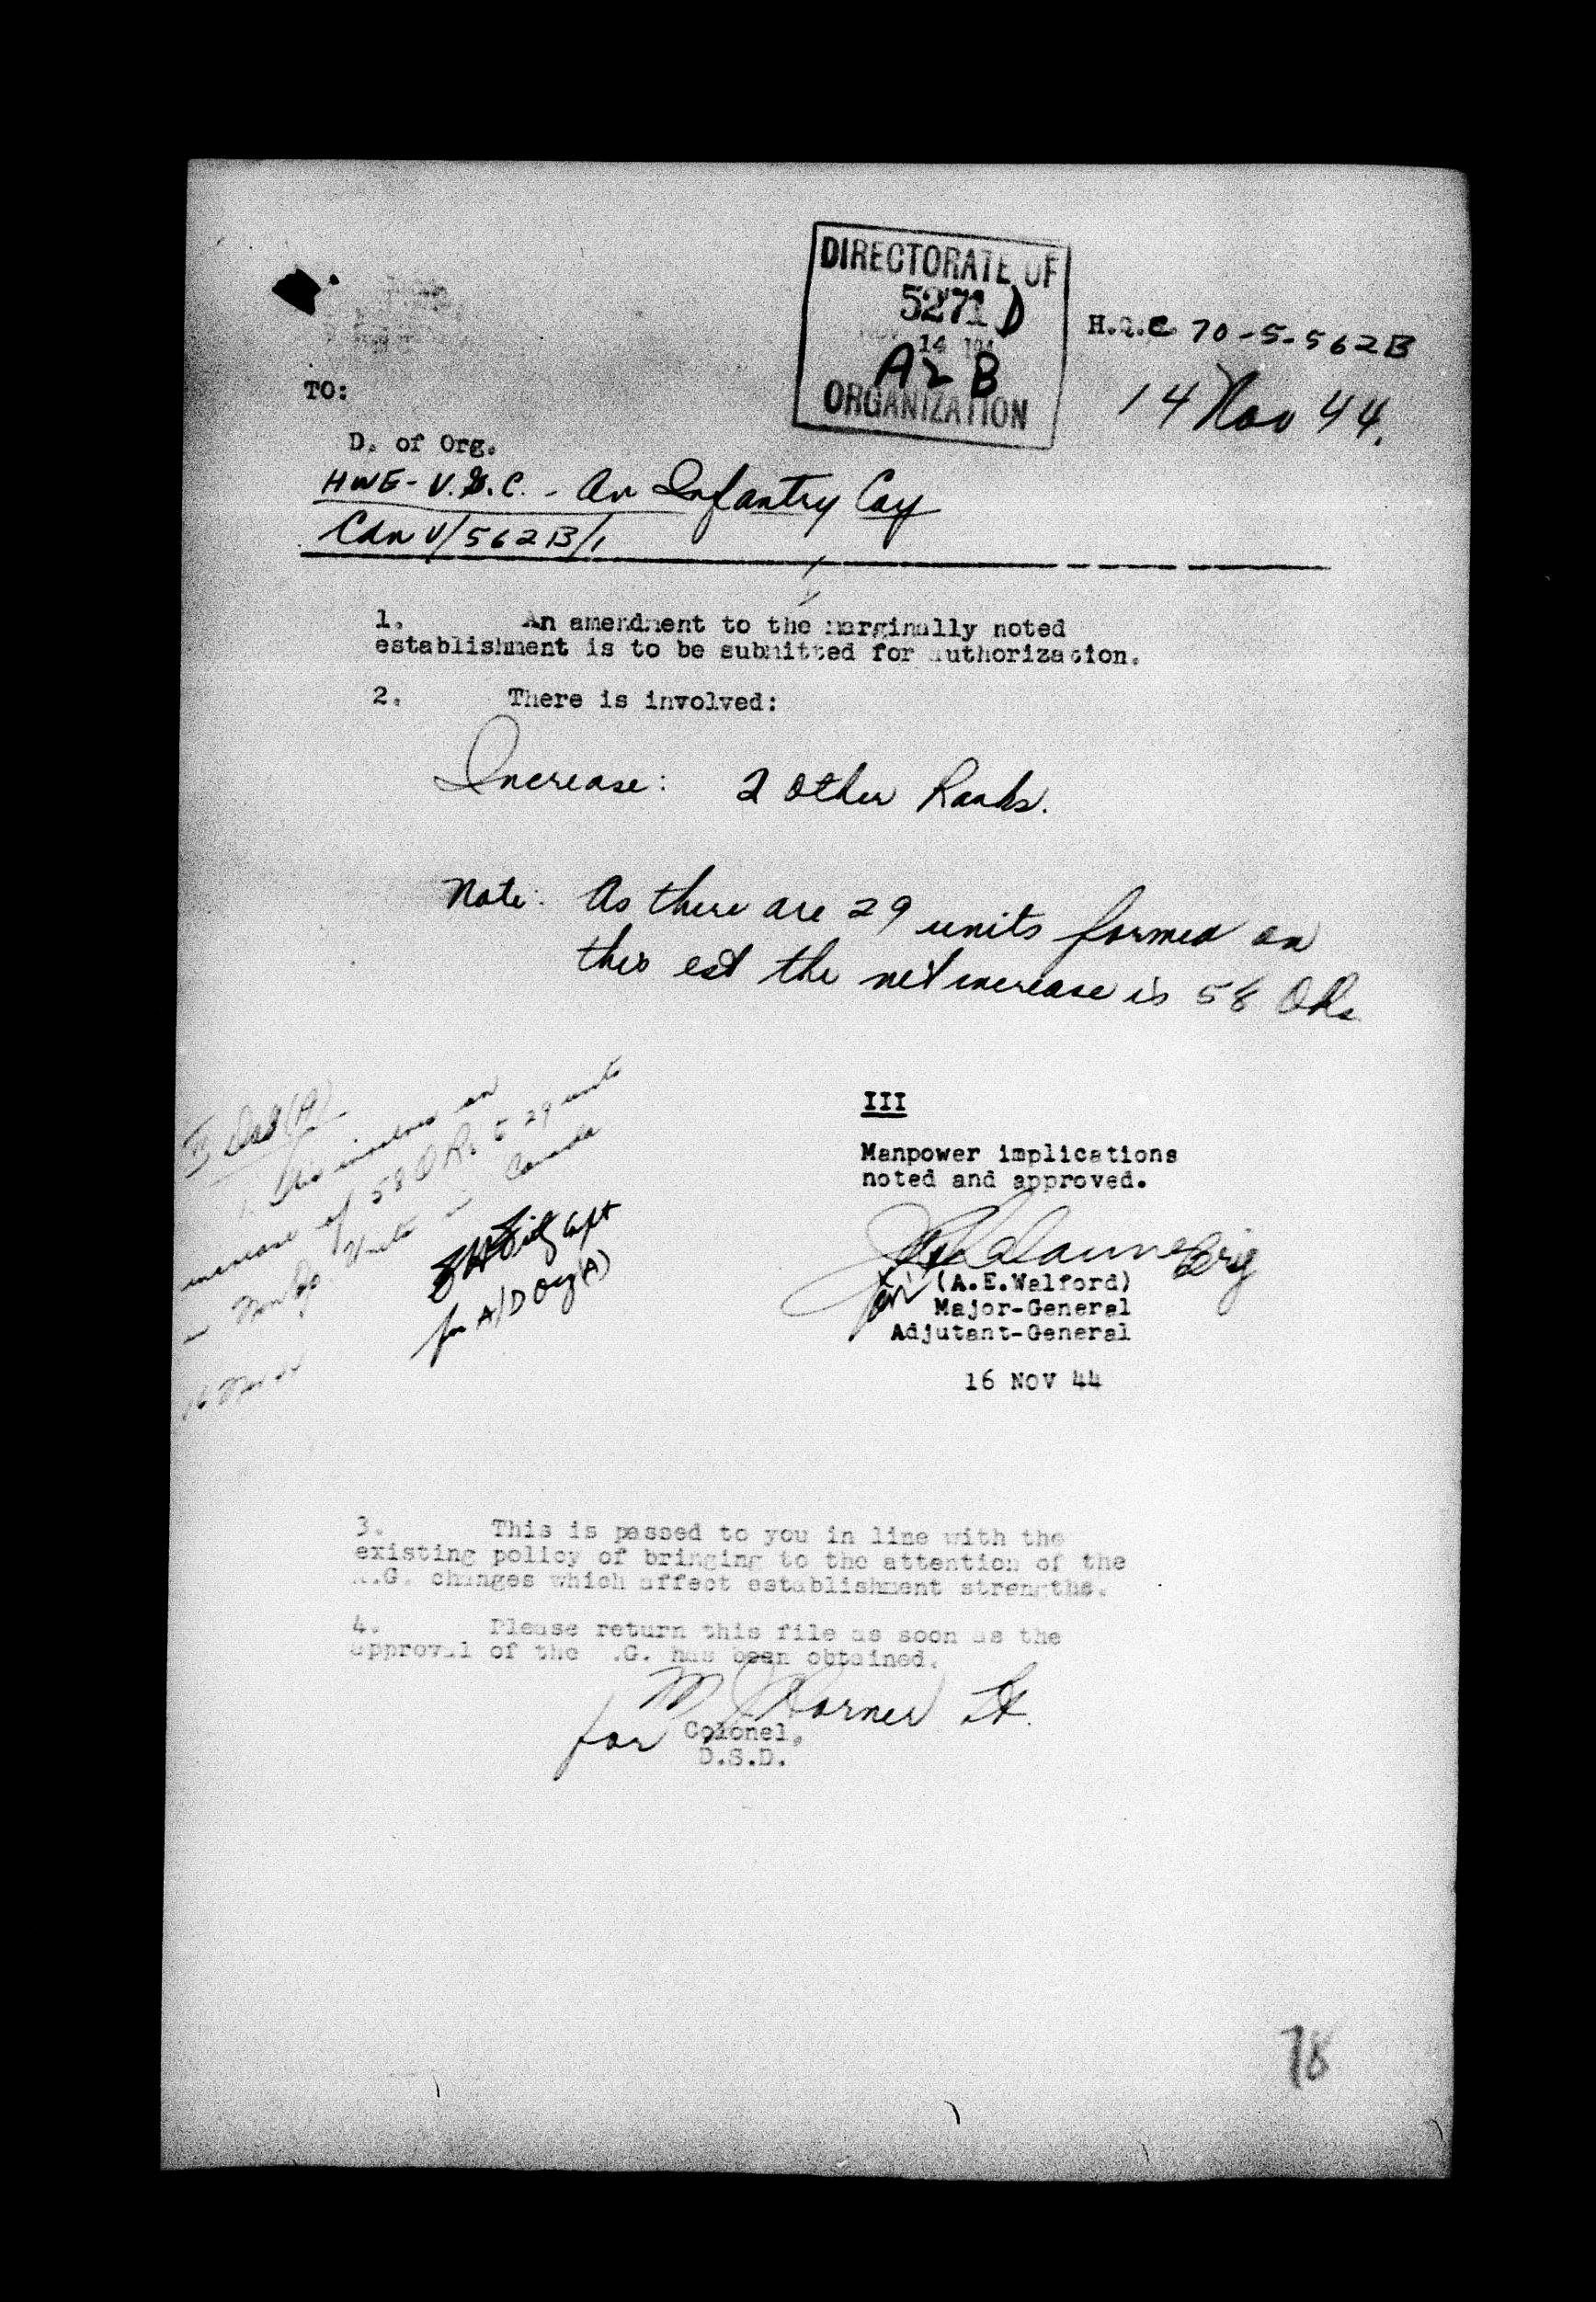 DIRECTORATE OF
5271 D
NOV 14 194
A2 B
ORGANIZATION
H.Q.C 70-5-562B
14 Nov 44.
TO:
D. of Org.
HWE - V.G.C. - An Infantry Coy
Cdn V/562B/1
1. An amendment to the marginally noted
establishment is to be submitted for authorization.
2. There is involved:
Increase: 2 Other Ranks.
Note: As there are 29 units formed on
this est the net increase is 58 ORs
II
1. This involves an
increase of 58 O.R. 29 units
in Non Op. Units in Canada
Capt
for A/D Org (A)
16 Nov 44
III
Manpower implications
noted and approved.
Brig
for (A.E.Walford)
Major-General
Adjutant-General
16 NOV 44
3. This is passed to you in line with the
existing policy of bringing to the attention of the
A.G. changes which affect establishment strengths.
4. Please return this file as soon as the
approval of the .G. has been obtained.
Lt.
for Colonel,
D.S.D.
78